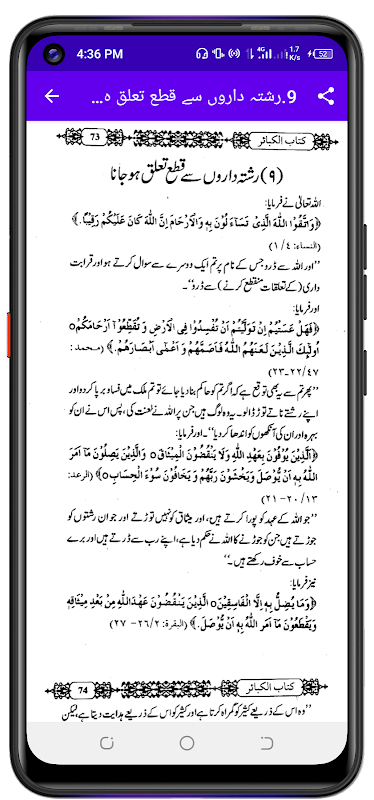 4:36 PM 4G 1.7 K/s 52
9.رشتہ داروں سے قطع تعلق ہ...
73 کتاب الکبائر
(۹) رشتہ داروں سے قطع تعلق ہو جانا
اللہ تعالٰی نے فرمایا:
﴿وَاتَّقُوا اللّٰهَ الَّذِیْ تَسَآءَ لُوْنَ بِهٖ وَالْاَرْحَامَ اِنَّ اللّٰهَ كَانَ عَلَیْكُمْ رَقِیْبًا.﴾
(النساء: ٤/١)
’’اور اللہ سے ڈرو جس کے نام پر تم ایک دوسرے سے سوال کرتے ہو اور قرابت
داری (کے تعلقات منقطع کرنے) سے ڈرو‘‘۔
اور فرمایا:
﴿فَهَلْ عَسَیْتُمْ اِنْ تَوَلَّیْتُمْ اَنْ تُفْسِدُوْا فِی الْاَرْضِ وَ تُقَطِّعُوْٓا اَرْحَامَكُمْ٥
اُولٰٓئِكَ الَّذِیْنَ لَعَنَهُمُ اللّٰهُ فَاَصَمَّهُمْ وَ اَعْمٰٓی اَبْصَارَهُمْ.﴾ (محمد:
٤٧/٢٢-٢٣)
’’پھر تم سے یہ بھی توقع ہے کہ اگر تم کو حاکم بنا دیا جائے تو تم ملک میں فساد برپا کر دو اور
اپنے رشتے ناتے توڑ ڈالو۔ یہ وہ لوگ ہیں جن پر اللہ نے لعنت کی، پس اس نے ان کو
بہرہ اور ان کی آنکھوں کو اندھا کر دیا‘‘۔ اور فرمایا:
﴿الَّذِیْنَ یُوْفُوْنَ بِعَهْدِ اللّٰهِ وَلَا یَنْقُضُوْنَ الْمِیْثَاقَ٥ وَالَّذِیْنَ یَصِلُوْنَ مَآ اَمَرَ
اللّٰهُ بِهٖٓ اَنْ یُّوْصَلَ وَیَخْشَوْنَ رَبَّهُمْ وَ یَخَافُوْنَ سُوْٓءَ الْحِسَابِ٥﴾ (الرعد:
١٣/٢٠-٢١)
’’جو اللہ کے عہد کو پورا کرتے ہیں، اور میثاق کو نہیں توڑتے اور جو ان رشتوں کو
جوڑتے ہیں جن کو جوڑنے کا اللہ نے حکم دیا ہے، اپنے رب سے ڈرتے ہیں اور برے
حساب سے خوف رکھتے ہیں۔‘‘
نیز فرمایا:
﴿وَمَا یُضِلُّ بِهٖٓ اِلَّا الْفَاسِقِیْنَ٥ الَّذِیْنَ یَنْقُضُوْنَ عَهْدَ اللّٰهِ مِنْ بَعْدِ مِیْثَاقِهٖ
وَیَقْطَعُوْنَ مَآ اَمَرَ اللّٰهُ بِهٖٓ اَنْ یُّوْصَلَ.﴾ (البقرة: ٢/٢٦-٢٧)
74 کتاب الکبائر
’’وہ اس کے ذریعے کثیر کو گمراہ کرتا ہے اور کثیر کو اس کے ذریعے ہدایت دیتا ہے، لیکن